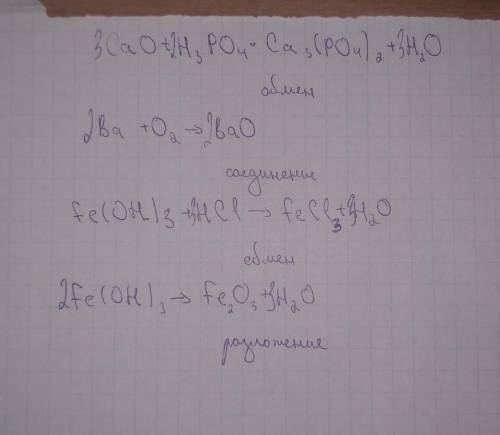 3CaO+2H₃PO₄= Ca₃(PO₄)₂+3H₂O
обмен
2Ba +O₂→2BaO
соединение
Fe(OH)₃+3HCl→FeCl₃+3H₂O
обмен
2Fe(OH)₃→Fe₂O₃+3H₂O
разложение